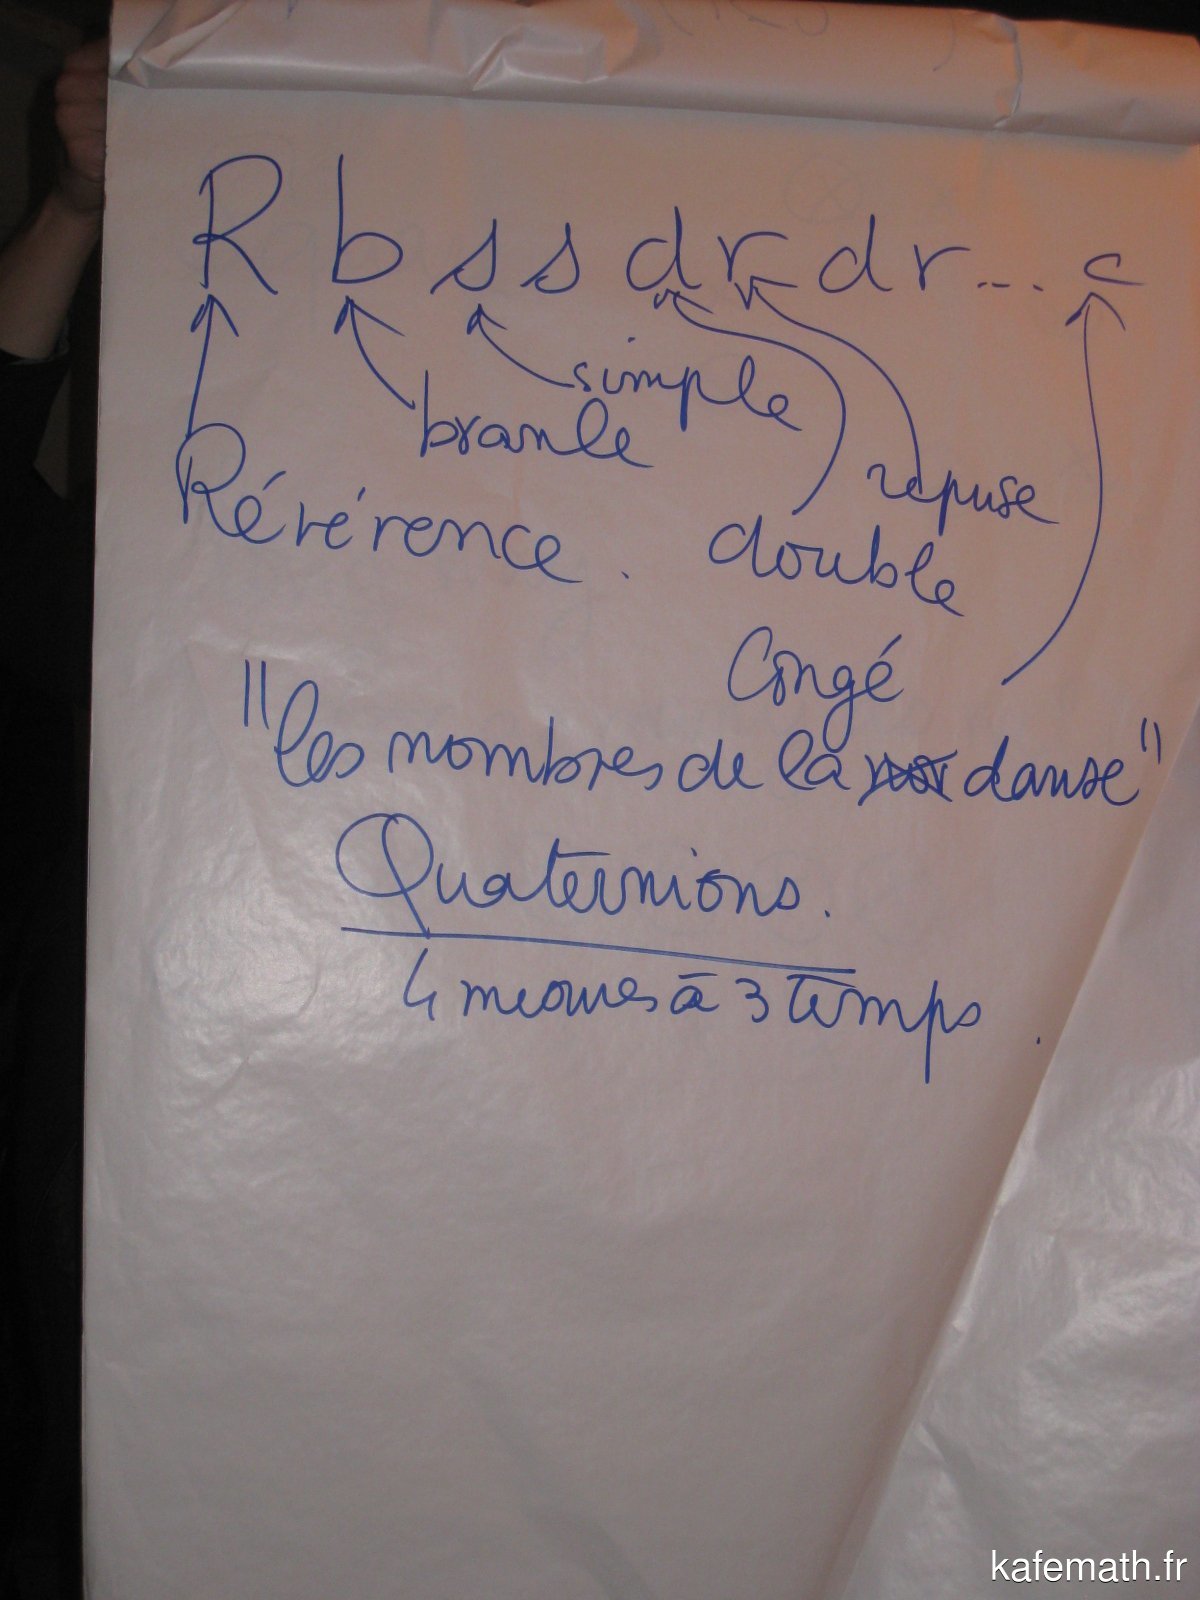 R b s s d r d r ... c
simple
branle
repuse
Révérence.
double
Congé
"les nombres de la danse"
Quaternions.
4 mesures à 3 temps.
kafemath.fr